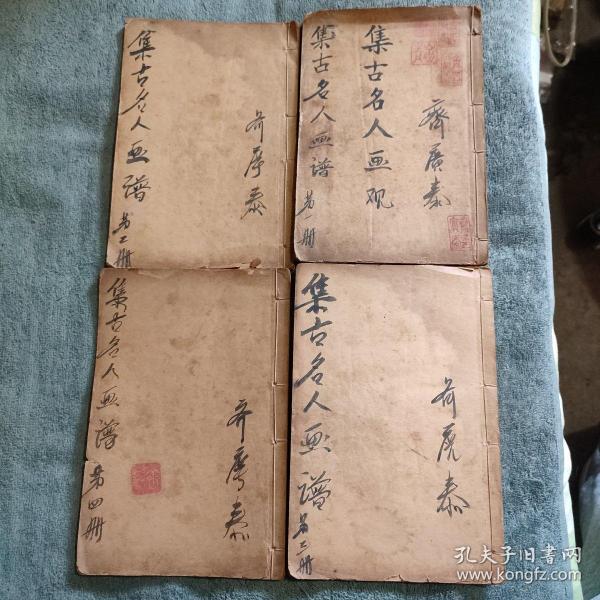 集古名人画譜
第二册
齐序泰
集古名人画譜
第一册
集古名人画观
齊广泰
集古名人画譜
第四册
齐序泰
集古名人画譜
第三册
齐序泰
孔夫子旧书网
www.kongfz.com